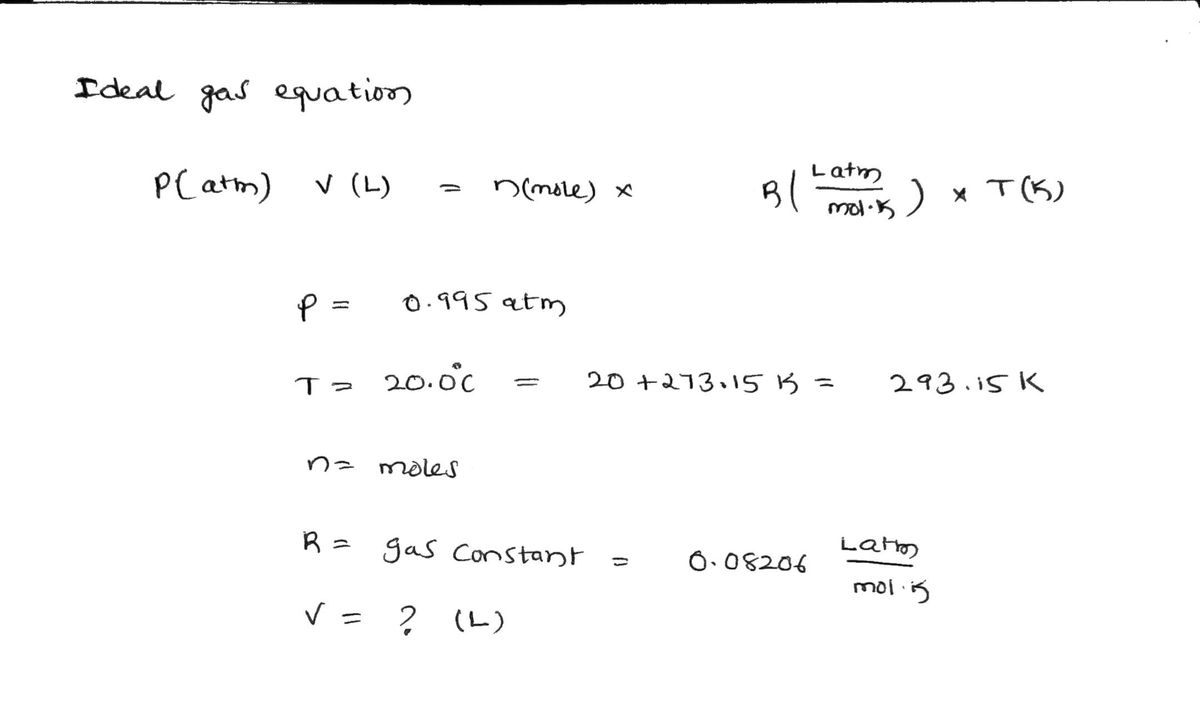 Ideal gas equation
P(atm) V (L) = n(mole) × R(L atm / mol·K) × T(K)
P = 0.995 atm
T = 20.0°C = 20 + 273.15 K = 293.15 K
n = moles
R = gas constant = 0.08206 L atm / mol·K
V = ? (L)